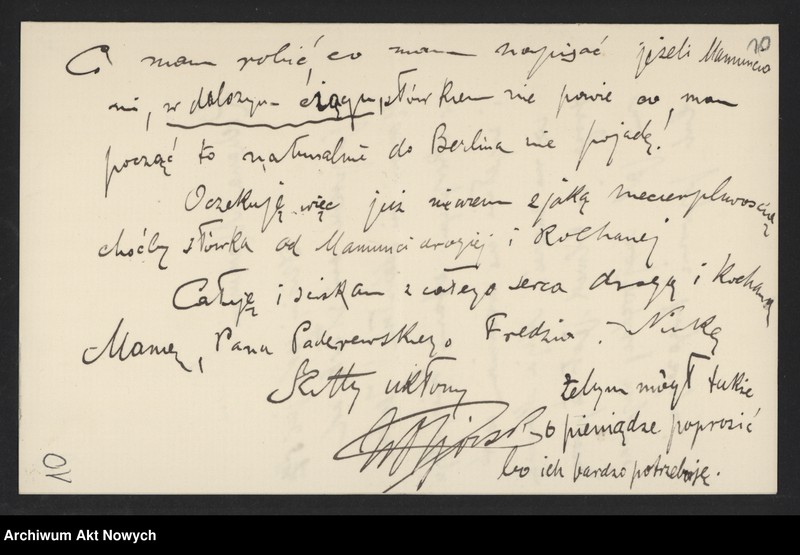 10
Co mam robić, co mam napisać jeżeli Mamuncia
mi, w dalszym ciągu, słówkiem nie powie co mam
począć to naturalnie do Berlina nie pojadę!
Oczekuję więc już niewiem z jaką niecierpliwością
choćby słówka od Mamunci drogiej i Kochanej
Całuję i ściskam z całego serca drogą i Kochaną
Mamę, Pana Paderewskiego Fredzia. Ninkę
ukłony
Żebym mógł także
o pieniądze poprosić
bo ich bardzo potrzebuję.
10
Archiwum Akt Nowych